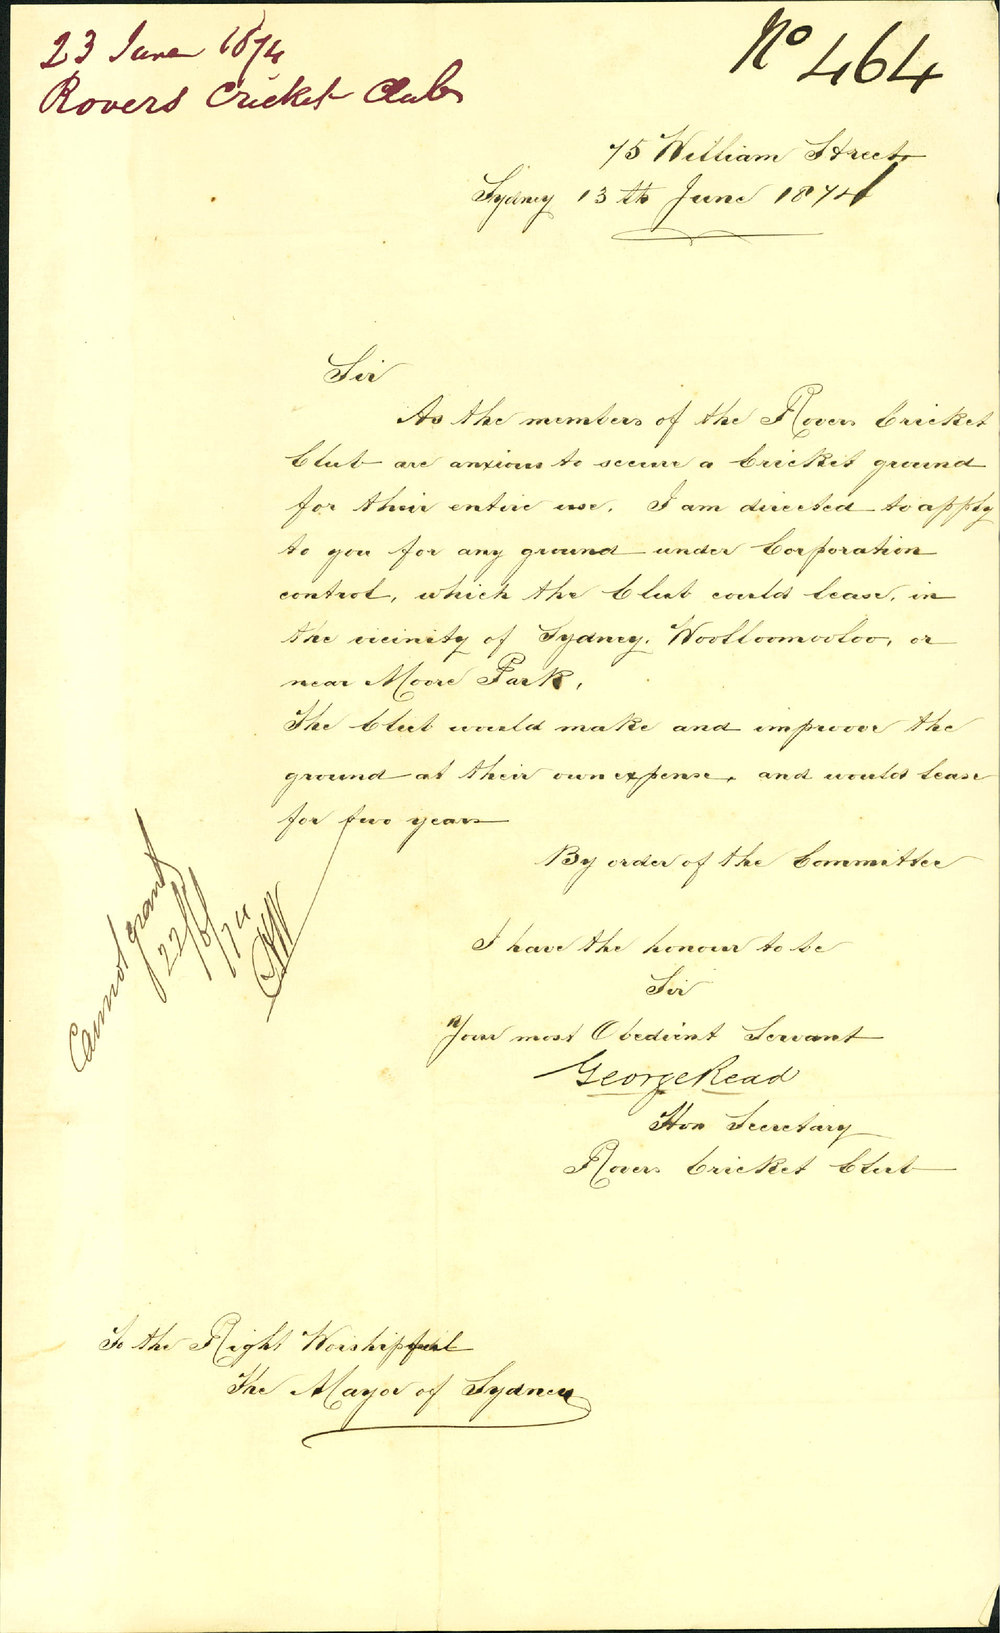 23 June 1874
Rovers Cricket Club
No 464
75 William Street
Sydney 13th June 1874
Sir
As the members of the Rovers Cricket
Club are anxious to secure a Cricket ground
for their entire use. I am directed to apply
to you for any ground under Corporation
control, which the Club could lease, in
the vicinity of Sydney, Woolloomooloo, or
near Moore Park.
The Club would make and improove the
ground at their own expense, and would lease
for two years
By order of the Committee
I have the honour to be
Sir
Your most Obedient Servant
George Read
Hon Secretary
Rovers Cricket Club
Cannot grant
22/6/74
To the Right Worshipful
The Mayor of Sydney